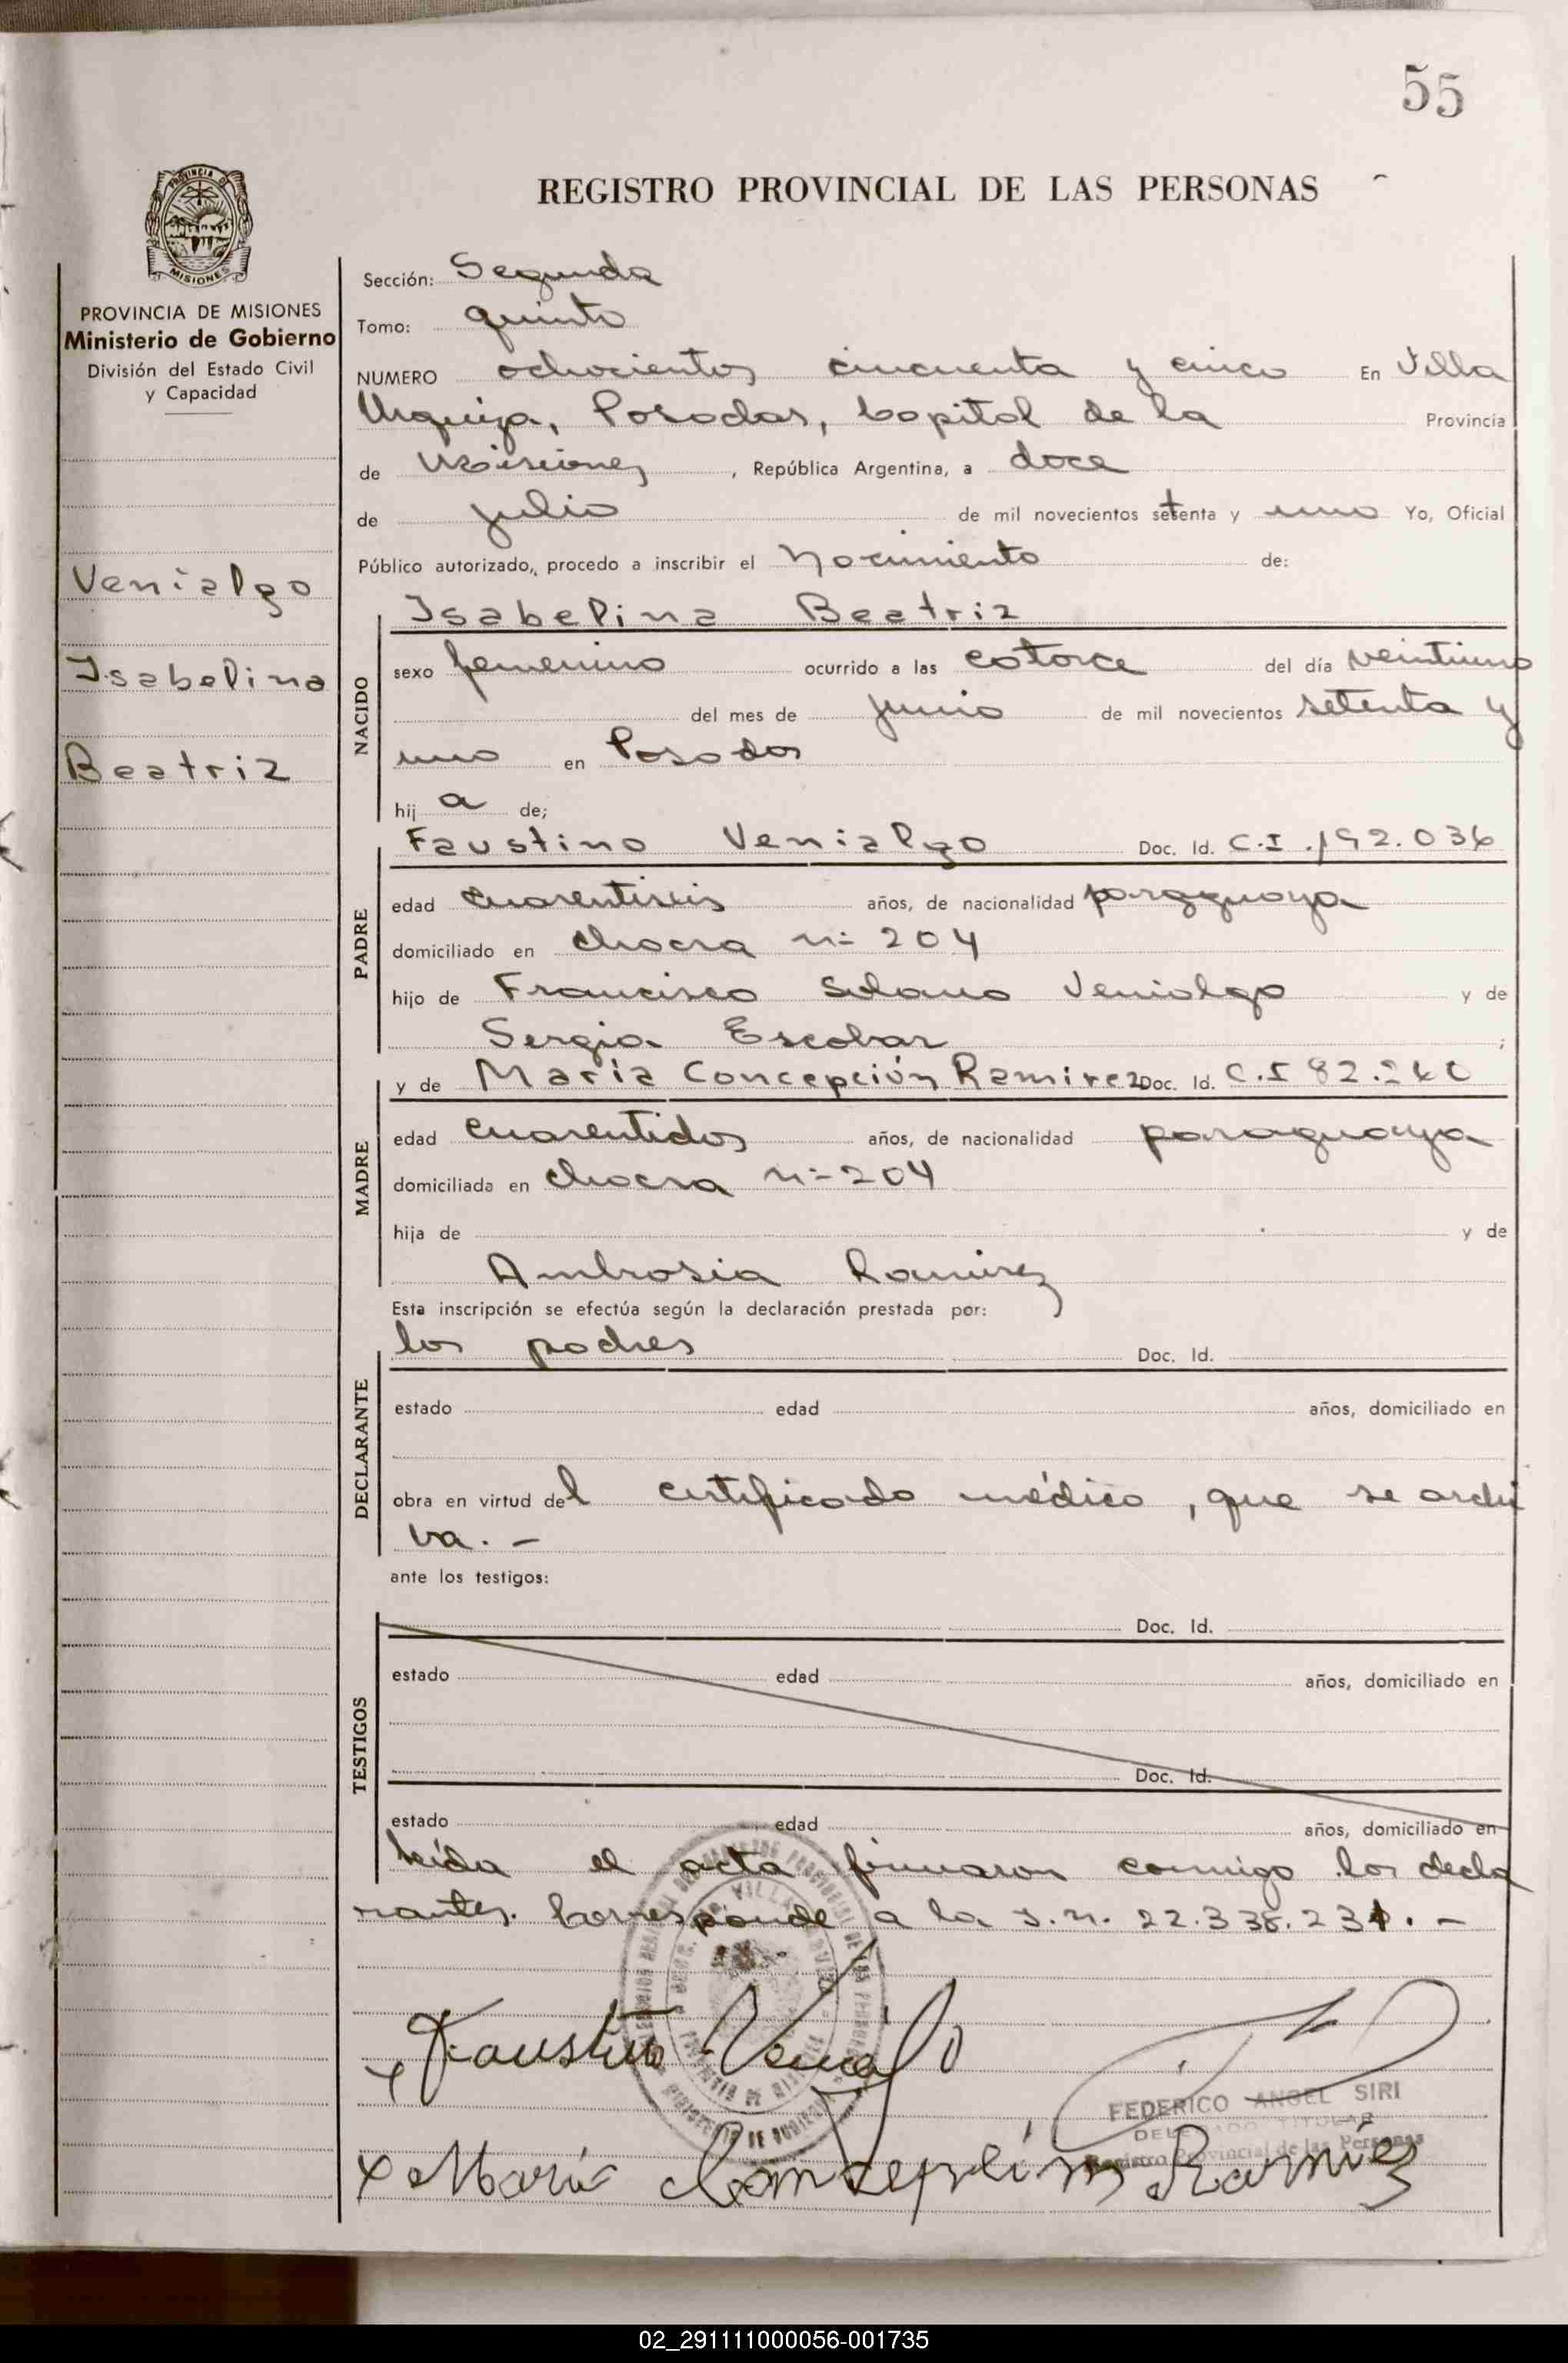 55
REGISTRO PROVINCIAL DE LAS PERSONAS
PROVINCIA DE MISIONES
Ministerio de Gobierno
División del Estado Civil
y Capacidad
Venialgo
Isabelina
Beatriz
Sección: Segunda
Tomo: quinto
NUMERO ochocientos cincuenta y cinco En Villa
Urquiza, Posadas, Capital de la Provincia
de Misiones, República Argentina, a doce
de julio de mil novecientos setenta y uno Yo, Oficial
Público autorizado, procedo a inscribir el Nacimiento de:
NACIDO
Isabelina Beatriz
sexo femenino ocurrido a las catorce del día veintiuno
del mes de junio de mil novecientos setenta y
uno en Posadas
hij a de;
PADRE
Faustino Venialgo Doc. Id. C.I. 192.036
edad cuarentiseis años, de nacionalidad paraguaya
domiciliado en chacra nº 204
hijo de Francisco Solano Venialgo y de
Sergia Escobar ;
MADRE
y de María Concepción Ramirez Doc. Id. C.I 82.
edad cuarentidos años, de nacionalidad paraguaya
domiciliada en chacra nº 204
hija de y de
Ambrosia Ramirez
Esta inscripción se efectúa según la declaración prestada por:
DECLARANTE
los padres Doc. Id.
estado edad años, domiciliado en
obra en virtud del certificado médico, que se archi
va. -
ante los testigos:
TESTIGOS
Doc. Id.
estado edad años, domiciliado en
Doc. Id.
estado edad años, domiciliado en
leída el acta firmaron conmigo los decla
rantes. Corresponde a la I.n. 22.338.231. -
Faustino Venialgo
FEDERICO ANGEL SIRI
DELEGADO TITULAR
Registro Provincial de las Personas
x Maria Consepsion Ramires
02_291111000056-001735